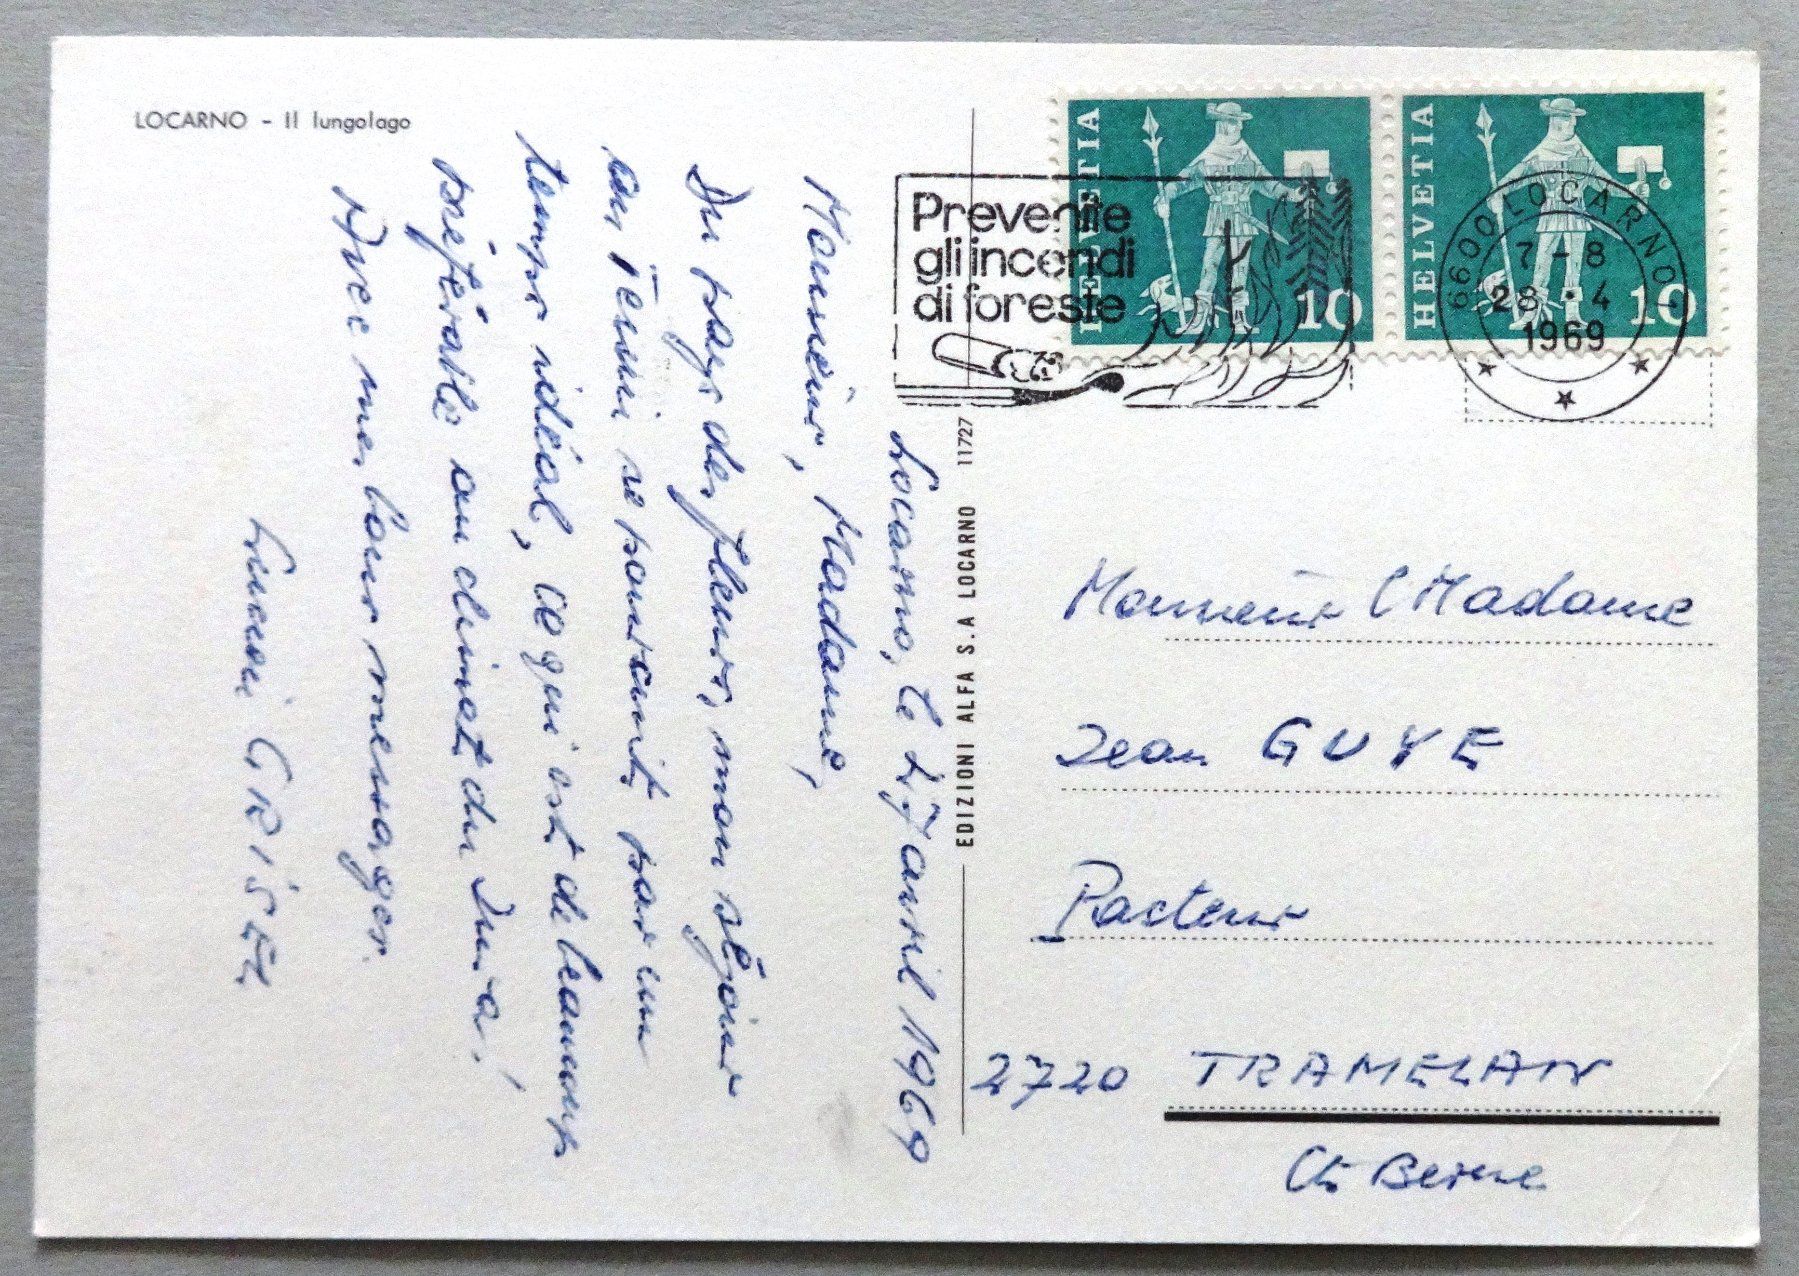 LOCARNO - Il lungolago
Locarno, le 27 avril 1969
Monsieur, Madame,
Du pays des fleurs, mon séjour
au Tessin se poursuit, par un
temps idéal, ce qui est de beaucoup
préférable au climat du Jura!
Avec mes bons messages.
GRISEL
EDIZIONI ALFA S.A LOCARNO 11727
HELVETIA
10
HELVETIA
10
Prevenite
gli incendi
di foreste
6600 LOCARNO
7-8
28.4
1969
Monsieur & Madame
Jean GUYE
Pasteur
2720 TRAMELAN
Ct. Berne